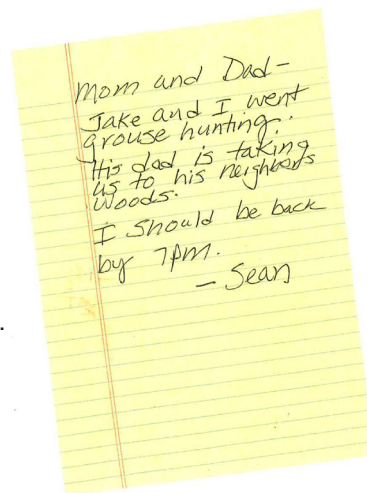 Mom and Dad-
Jake and I went
grouse hunting.
His dad is taking
us to his neighbors
woods.
I should be back
by 7pm.
- Sean